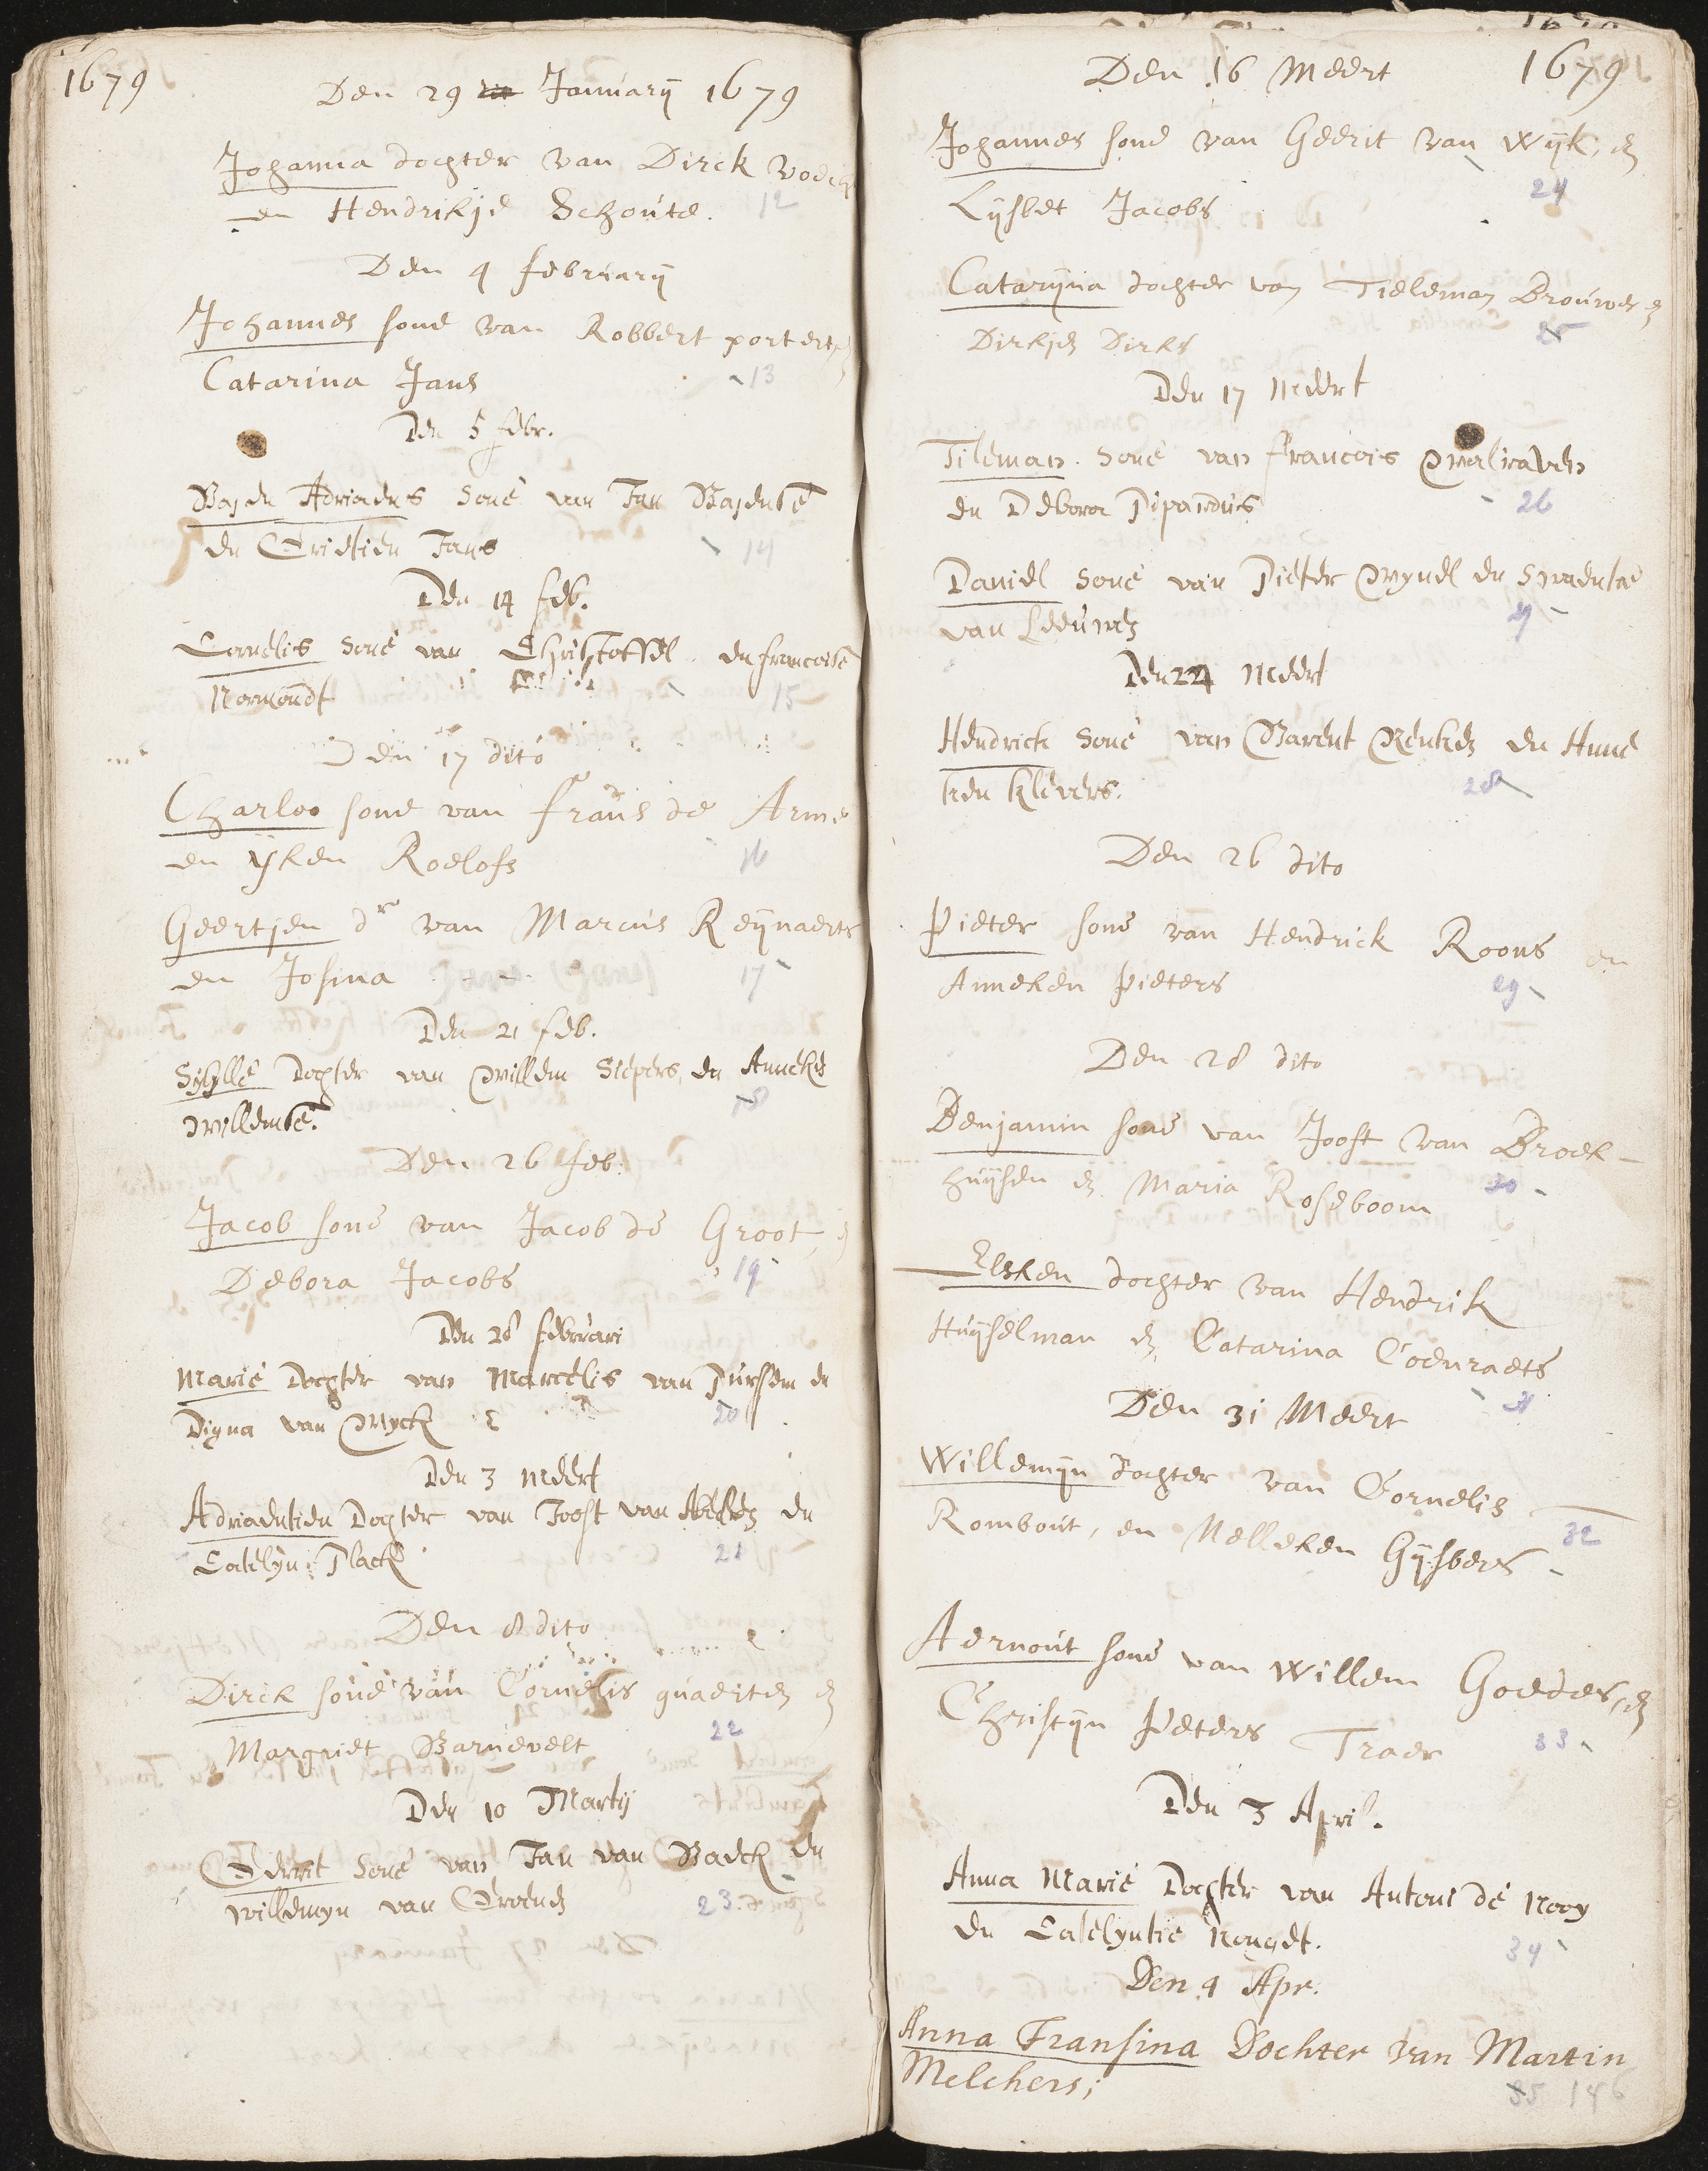 1679
Den 29 January 1679
Johanna dochter van Dirck
en Hendrikje Schoute. 12
Den 4 february
Johannes sone van Robbert portert
Catarina Jans 13
Den 5 febr.
Basten Adriaens sone van Jan Bastense
en Grietien Jans 14
Den 14 feb.
Cornelis sone van Christoffel en francoise
Normondt 15
Den 17 dito
Charloo sone van frans de Arme
en Yken Roelofs 16
Geertjen dr van Marcus Reynaerts
en Josina 17
Den 21 feb.
Sibylle Dochter van Willem Siepers, en Anneke
Willemse. 18
Den 26 feb.
Jacob sone van Jacob de Groot, en
Debora Jacobs 19
Den 28 februari
Marie Dochter van Marcelis van Purssen en
Digna van Wyck 20
Den 3 Meert
Adriaentien Dochter van Joost van en
Catelyn Plack 21
Den 8 dito
Dirck sone van Cornelis quaeiten en
Margriet Barnevelt 22
Den 10 Martij
Gerrit sone van Jan van Baeck en
willemyn van Groenen 23
Den 16 Meert 1679
Johannes sone van Geerit van Wijk, en
Lysbet Jacobs 24
Cataryna dochter van Tieleman Brouwer en
Dirkjen Dirks 25
Den 17 Meert
Tileman sone van francois Walraven
en Debora Pipardus 26
Daniel sone van Pieter Wynel en Swaentie
van Leeuwen 27
Den 24 Meert
Hendrick sone van Barent Renken en Anne
ken Klevers. 28
Den 26 dito
Pieter sone van Hendrick Roons en
Anneken Pieters 29
Den 28 dito
Benjamin sone van Joost van Broek-
huysen en Maria Roseboom 30
Elsken dochter van Hendrik
Huyselman en Catarina Coenraets
31
Den 31 Meert
Willemijn dochter van Cornelis
Rombout, en Nelleken Gysbers 32
Aernout sone van Willem Goedes, en
Christyn Peters Traer 33
Den 3 April.
Anna Marie Dochter van Antoni de Rooy
en Catelyntie Rongdt. 34
Den 4 Apr.
Anna Fransina Dochter van Martin
Melchers; 35 146